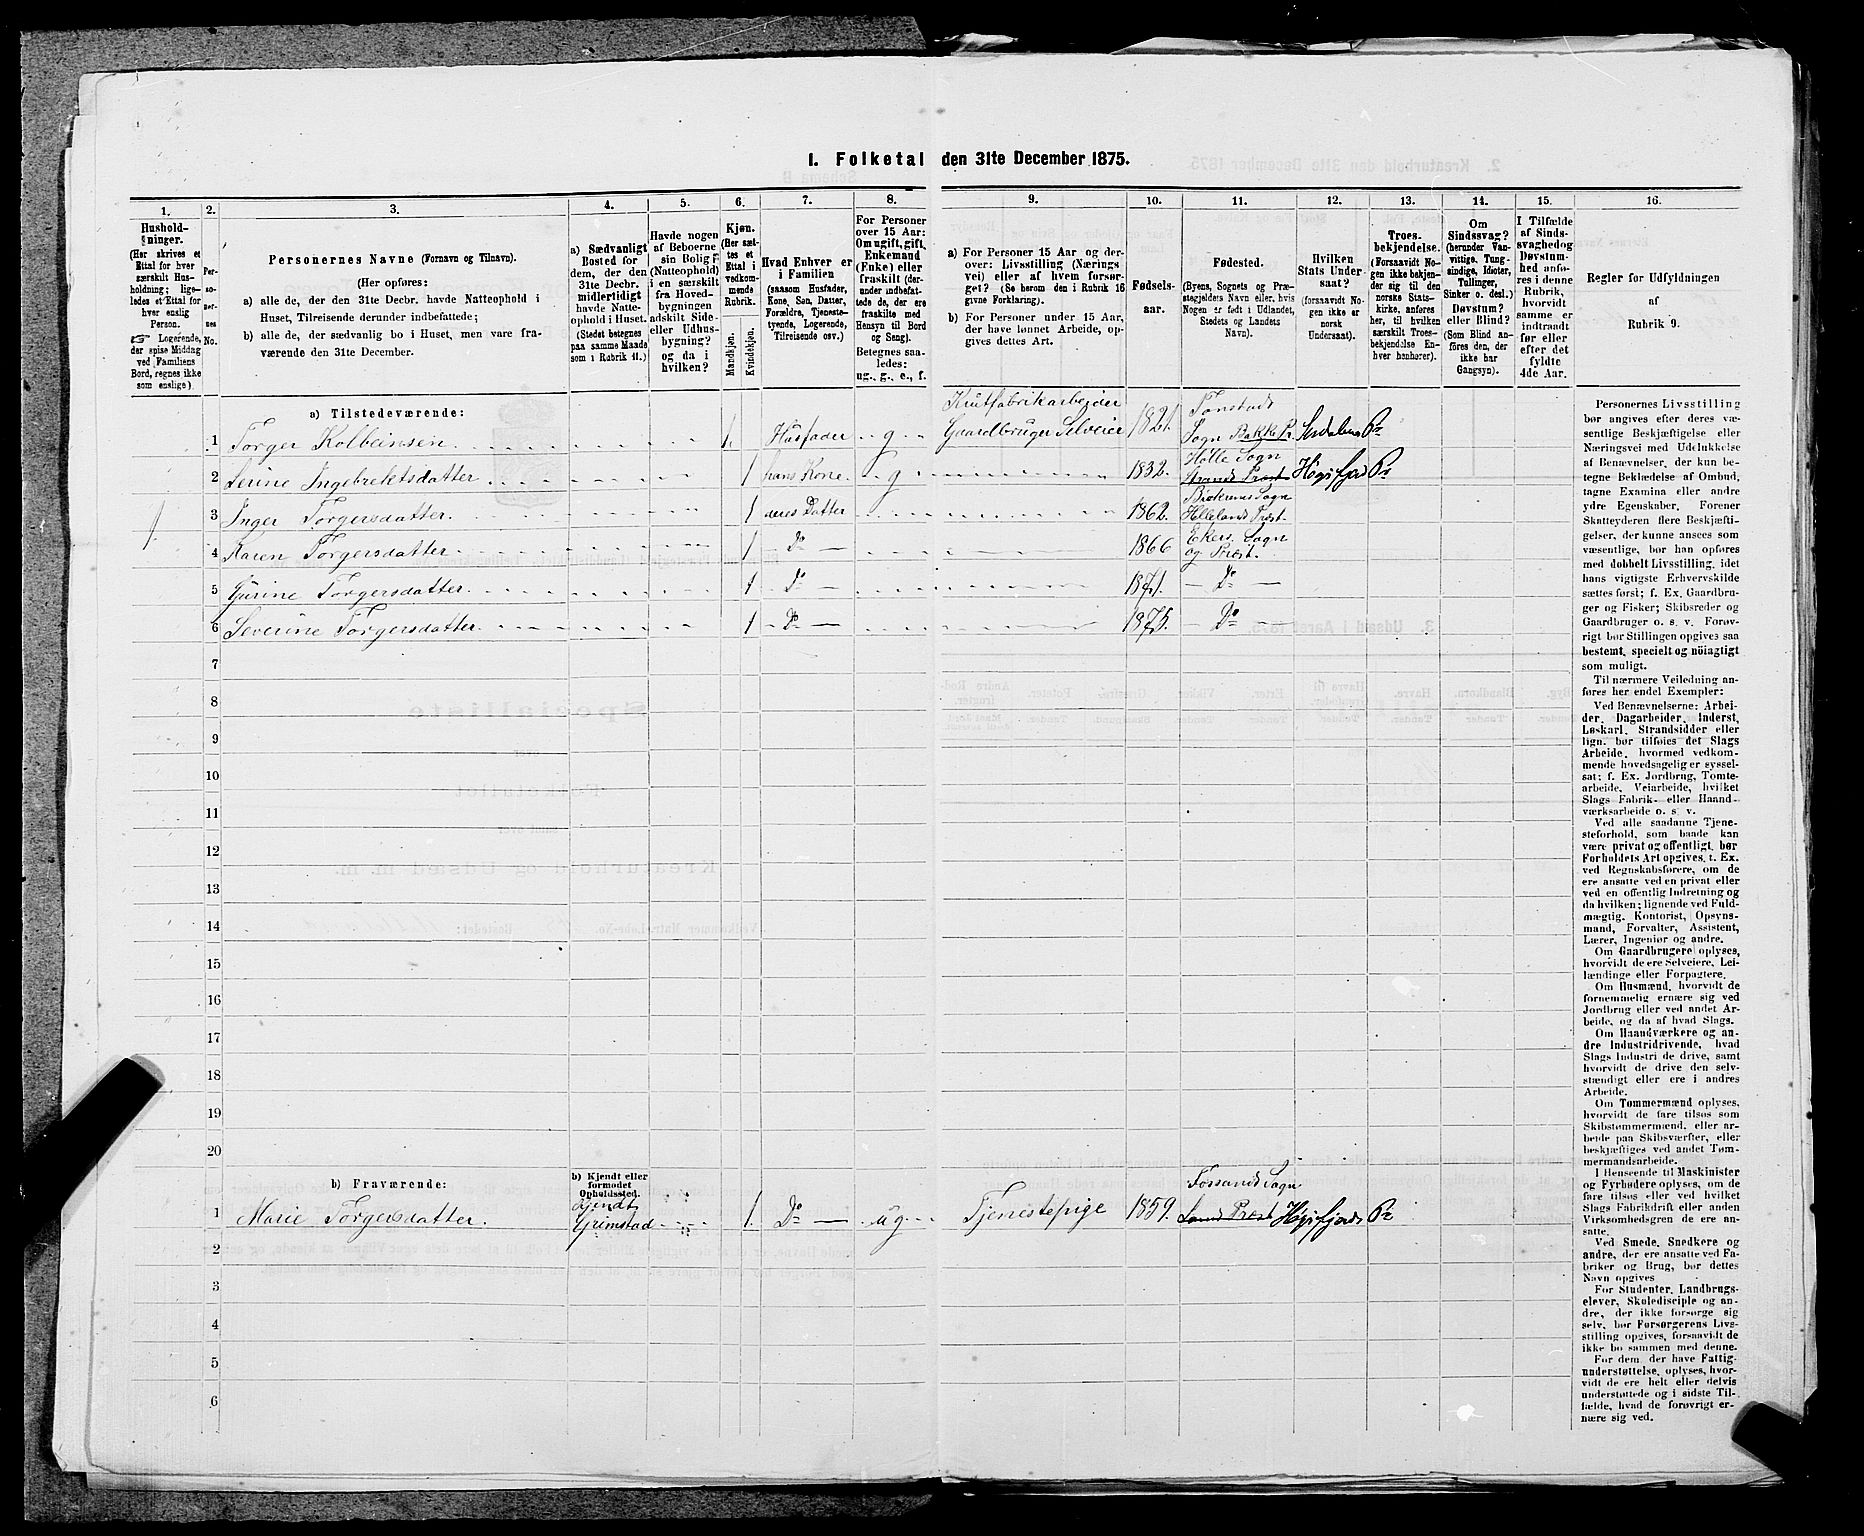 I. Folketal den 31te December 1875.
1. 2. 3. 4. 5. 6. 7. 8. 9. 10. 11. 12. 13. 14. 15. 16.
Hushold-
ninger.
(Her skrives et
Ettal for hver
særskilt Hus-
holdning; lige-
ledes et Ettal for
hver enslig
Person.
☞ Logerende,
der spise Middag
ved Familiens
Bord, regnes ikke
som enslige).
Per-
so-
ner-
nes
No.
Personernes Navne (Fornavn og Tilnavn).
(Her opføres:
a) alle de, der den 31te Decbr. havde Natteophold i
Huset, Tilreisende derunder indbefattede;
b) alle de, der sædvanlig bo i Huset, men vare fra-
værende den 31te December.
a) Sædvanligt
Bosted for
dem, der den
31te Decbr.
midlertidigt
havde Natte-
ophold i Huset.
(Stedet betegnes
paa samme Maade
som i Rubrik 11.)
Havde nogen
af Beboerne
sin Bolig
(Natteophold)
i en særskilt
fra Hoved-
bygningen
adskilt Side-
eller Udhus-
bygning?
og da i
hvilken?
Kjøn.
(Her sæt-
tes et
Ettal i
vedkom-
mende
Rubrik.
Mandkjøn.
Kvindekjøn.
Hvad Enhver er
i Familien
(saasom Husfader,
Kone, Søn, Datter,
Forældre, Tjeneste-
tyende, Logerende,
Tilreisende osv.)
For Personer
over 15 Aar:
Om ugift, gift,
Enkemand
(Enke) eller
fraskilt (der-
under indbefat-
tede de, der ere
fraskilte med
Hensyn til Bord
og Seng).
Betegnes saa-
ledes:
ug., g., e., f.
a) For Personer 15 Aar og der-
over: Livsstilling (Nærings
vei) eller af hvem forsør-
get? (Se herom den i Rubrik 16
givne Forklaring).
b) For Personer under 15 Aar,
der have lønnet Arbeide, op-
gives dettes Art.
Fødsels-
aar.
Fødested.
(Byens, Sognets og Præ-
stegjeldets Navn eller, hvis
Nogen er født i Udlandet,
Stedets og Landets
Navn).
Hvilken
Stats Under-
saat?
(forsaavidt No-
gen ikke er
norsk
Undersaat).
Troes-
bekjendelse.
(Forsaavidt No-
gen ikke bekjen-
der sig til den
norske Stats-
kirke, anføres
her, til hvilken
særskilt Troes-
bekjendelse En-
hver henhører).
Om
Sindssvag?
(herunder Van-
vittige, Tung-
sindige, Idioter,
Tullinger,
Sinker o. desl.)
Døvstum?
eller Blind?
(Som Blind an-
føres den, der
ikke har
Gangsyn).
I Tilfælde
af Sinds-
svaghed og
Døvstum-
hed anfø-
res i denne
Rubrik,
hvorvidt
samme er
indtraadt
før eller
efter det
fyldte
4de Aar.
Regler for Udfyldningen
af
Rubrik 9.
a) Tilstedeværende:
1 Torger Kolbeinsen 1. Husfader g Krutfabrikarbeider Gaardbruger Selveier 1821. Tonstads Sogn Bakke Pr. Sirdalens Pr
2 Serine Ingebretetsdatter 1 hans Kone g 1832. Holle Sogn Strands Præst. Høgsfjord Pr
1. 3 Inger Torgersdatter 1 deres Datter 1862. Sogn Hellelands Præst.
4 Karen Torgersdatter 1 Do 1866 Ekers Sogn og Præst.
5 Gurine Torgersdatter 1 Do 1871. Do
6 Severine Torgersdatter 1 Do 1875. Do
7
8
9
10
11
12
13
14
15
16
17
18
19
20
b) Fraværende:
b) Kjendt eller
formodet
Opholdssted.
1 Marie Torgersdatter. Kjendt Grimstad 1. Do ug Tjenestepige 1859. Fossands Sogn Præst Høgsfjords Pr
2
3
4
5
6
Personernes Livsstilling
bør angives efter deres væ-
sentlige Beskjæftigelse eller
Næringsvei med Udelukkelse
af Benævnelser, der kun be-
tegne Beklædelse af Ombud,
tagne Examina eller andre
ydre Egenskaber. Forener
Skatteyderen flere Beskjæfti-
gelser, der kunne ansees som
væsentlige, bør han opføres
med dobbelt Livsstilling, idet
hans vigtigste Erhvervskilde
sættes først; f. Ex. Gaardbru-
ger og Fisker; Skibsreder og
Gaardbruger o. s. v. Forøv-
rigt bør Stillingen opgives saa
bestemt, specielt og nöiagtigt
som muligt.
Til nærmere Veiledning an-
føres her endel Exempler:
Ved Benævnelserne: Arbei-
der, Dagarbeider, Inderst,
Løskarl, Strandsidder eller
lign. bør tilføies det Slags
Arbeide, hvormed vedkom-
mende hovedsagelig er syssel-
sat; f. Ex. Jordbrug, Tomte-
arbeide, Veiarbeide, hvilket
Slags Fabrik- eller Haand-
værksarbeide o. s. v.
Ved alle saadanne Tjene-
steforhold, som baade kan
være privat og offentligt, bør
Forholdets Art opgives, t. Ex.
ved Regnskabsførere, om de
ere ansatte ved en privat eller
ved en offentlig Indretning og
da hvilken; lignende ved Fuld-
mægtig, Kontorist, Opsyns-
mand, Forvalter, Assistent,
Lærer, Ingeniør og andre.
Om Gaardbrugere oplyses,
hvorvidt de ere Selveiere, Lei-
lændinge eller Forpagtere.
Om Husmænd, hvorvidt de
fornemmelig ernære sig ved
Jordbrug eller ved andet Ar-
beide, og da af hvad Slags.
Om Haandværkere og an-
dre Industridrivende, hvad
Slags Industri de drive, samt
hvorvidt de drive den selv-
stændigt eller ere i andres
Arbeide.
Om Tømmermænd oplyses,
hvorvidt de fare tilsøs som
Skibstømmermænd, eller ar-
beide paa Skibsværfter, eller
beskjæftiges ved andet Tøm-
mermandsarbeide.
I Henseende til Maskinister
og Fyrbødere oplyses, om de
fare tilsøs eller ved hvilket
Slags Fabrikdrift eller anden
Virksomhedsgren de ere an-
satte.
Ved Smede, Snedkere og
andre, der ere ansatte ved Fa-
briker og Brug, bør dettes
Navn opgives
For Studenter, Landbrugs-
elever, Skoledisciple og an-
dre, der ikke forsørge sig
selv, bør Forsørgerens Livs-
stilling opgives, forsaavidt de
ikke bo sammen med denne.
For dem, der have Fattig-
understøttelse, oplyses, hvor-
vidt de ere helt eller delvis
understøttede og i sidste Til-
fælde, hvad de forøvrigt er-
nære sig ved.